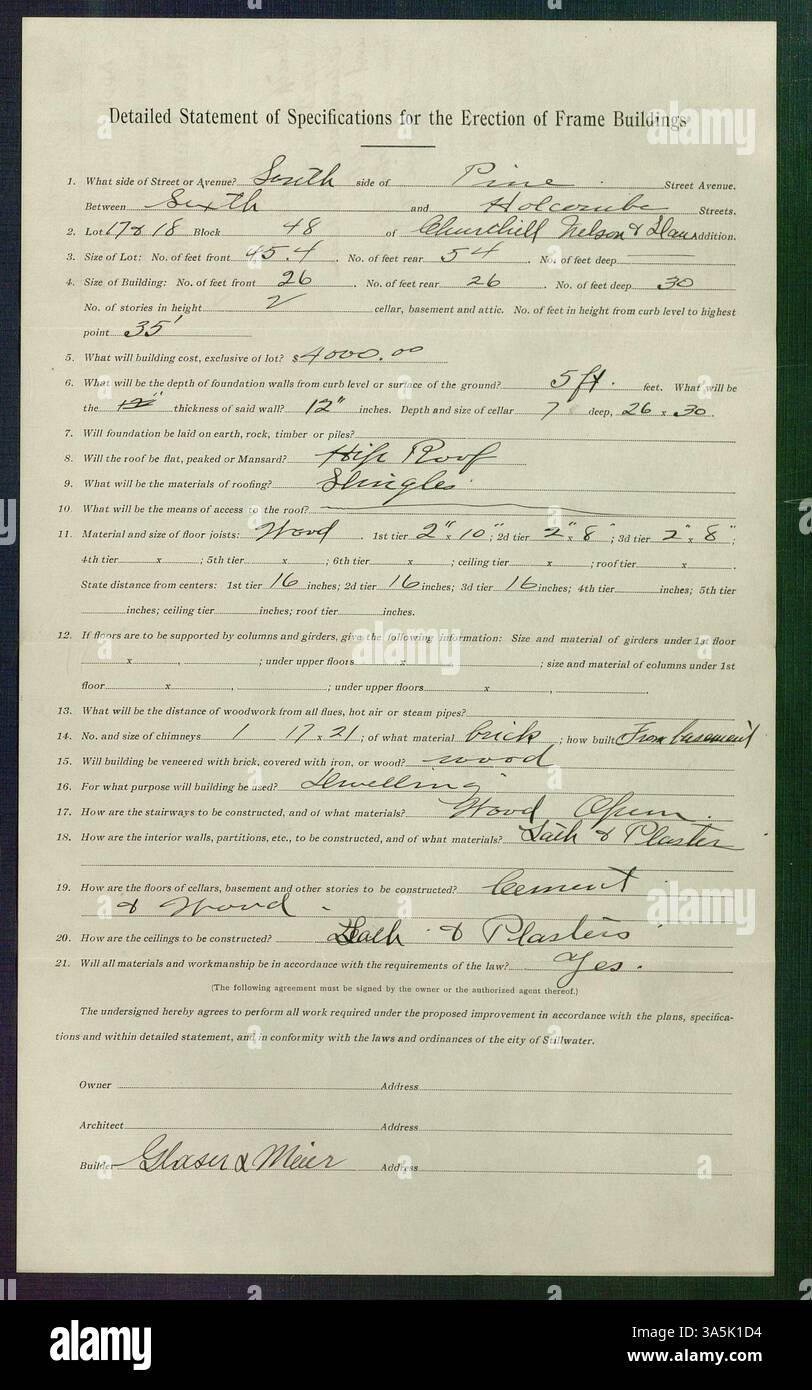 Detailed Statement of Specifications for the Erection of Frame Buildings
1. What side of Street or Avenue? South side of Pine Street Avenue.
Between Sixth and Holcombe Streets.
2. Lot 17 & 18 Block 48 of Churchill Nelson & Slau Addition.
3. Size of Lot: No. of feet front 45.4. No. of feet rear 54. No. of feet deep
4. Size of Building: No. of feet front 26. No. of feet rear 26. No. of feet deep 30
No. of stories in height 2 cellar, basement and attic. No. of feet in height from curb level to highest
point 35'
5. What will building cost, exclusive of lot? $4000.00
6. What will be the depth of foundation walls from curb level or surface of the ground? 5 ft. feet. What will be
the thickness of said wall? 12" inches. Depth and size of cellar 7 deep, 26 x 30.
7. Will foundation be laid on earth, rock, timber or piles?
8. Will the roof be flat, peaked or Mansard? Hip Roof
9. What will be the materials of roofing? Shingles
10. What will be the means of access to the roof?
11. Material and size of floor joists: Wood. 1st tier 2" x 10"; 2d tier 2" x 8"; 3d tier 2" x 8";
4th tier x ; 5th tier x ; 6th tier x ; ceiling tier x ; roof tier x .
State distance from centers: 1st tier 16 inches; 2d tier 16 inches; 3d tier 16 inches; 4th tier inches; 5th tier
inches; ceiling tier inches; roof tier inches.
12. If floors are to be supported by columns and girders, give the following information: Size and material of girders under 1st floor
x , ; under upper floors x ; size and material of columns under 1st
floor x , ; under upper floors x , .
13. What will be the distance of woodwork from all flues, hot air or steam pipes?
14. No. and size of chimneys 1 17 x 21; of what material brick; how built From basement
15. Will building be veneered with brick, covered with iron, or wood? wood
16. For what purpose will building be used? Dwelling
17. How are the stairways to be constructed, and of what materials? Wood Open.
18. How are the interior walls, partitions, etc., to be constructed, and of what materials? Lath & Plaster
19. How are the floors of cellars, basement and other stories to be constructed? Cement
& Wood
20. How are the ceilings to be constructed? Lath & Plasters
21. Will all materials and workmanship be in accordance with the requirements of the law? Yes.
(The following agreement must be signed by the owner or the authorized agent thereof.)
The undersigned hereby agrees to perform all work required under the proposed improvement in accordance with the plans, specifica-
tions and within detailed statement, and in conformity with the laws and ordinances of the city of Stillwater.
Owner Address
Architect Address
Builder Glaser & Meier Address
alamy
Image ID: 2A5K1D4
www.alamy.com